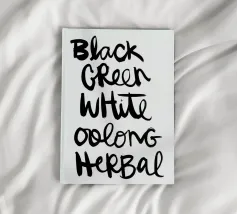 Black
GReen
WHite
OOLONG
HeRBaL